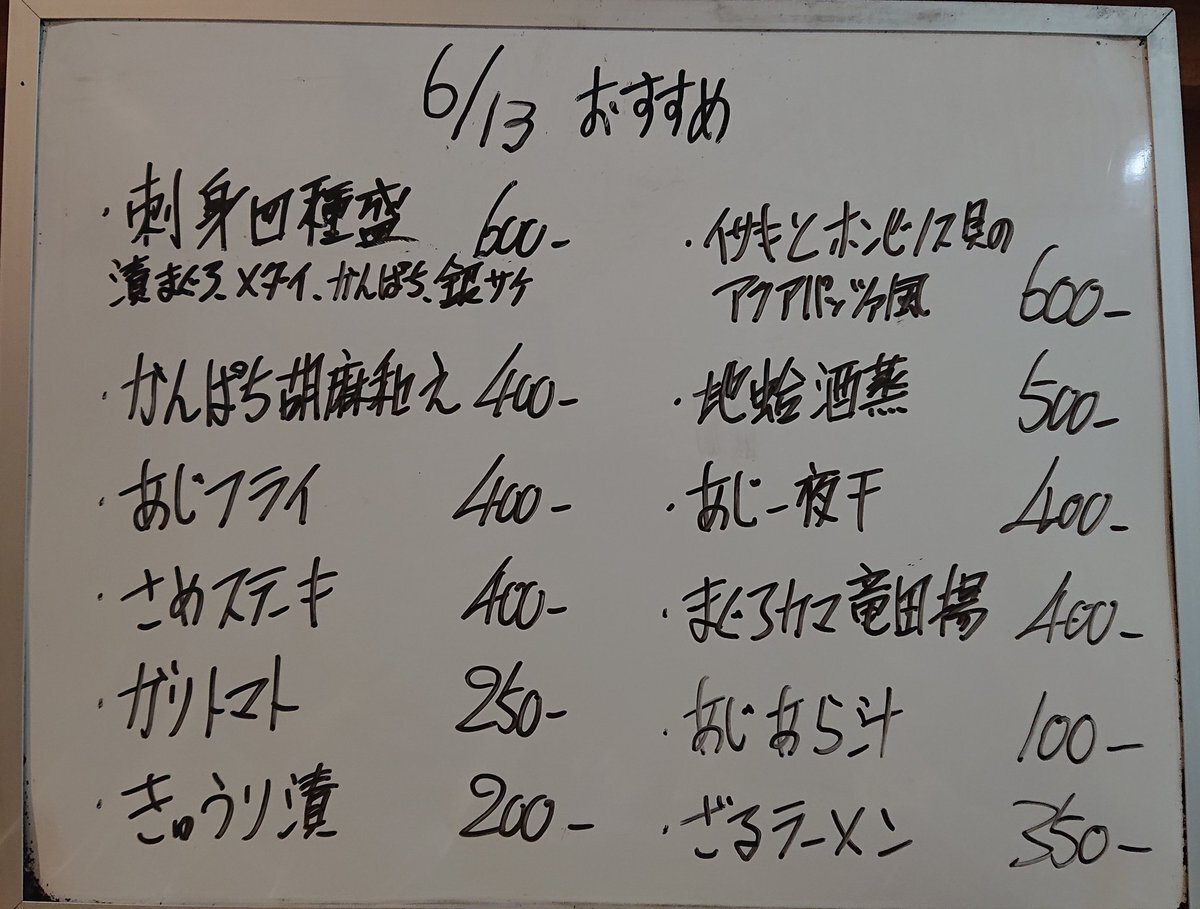 6/13 おすすめ
・刺身四種盛 600-
漬まぐろ、メダイ、かんぱち、銀サケ
・かんぱち胡麻和え 400-
・あじフライ 400-
・さめステーキ 400-
・ガリトマト 250-
・きゅうり漬 200-
・イサキとホンビノス貝の
アクアパッツァ風 600-
・地蛤酒蒸 500-
・あじ一夜干 400-
・まぐろカマ竜田揚 400-
・あじあら汁 100-
・ざるラーメン 350-